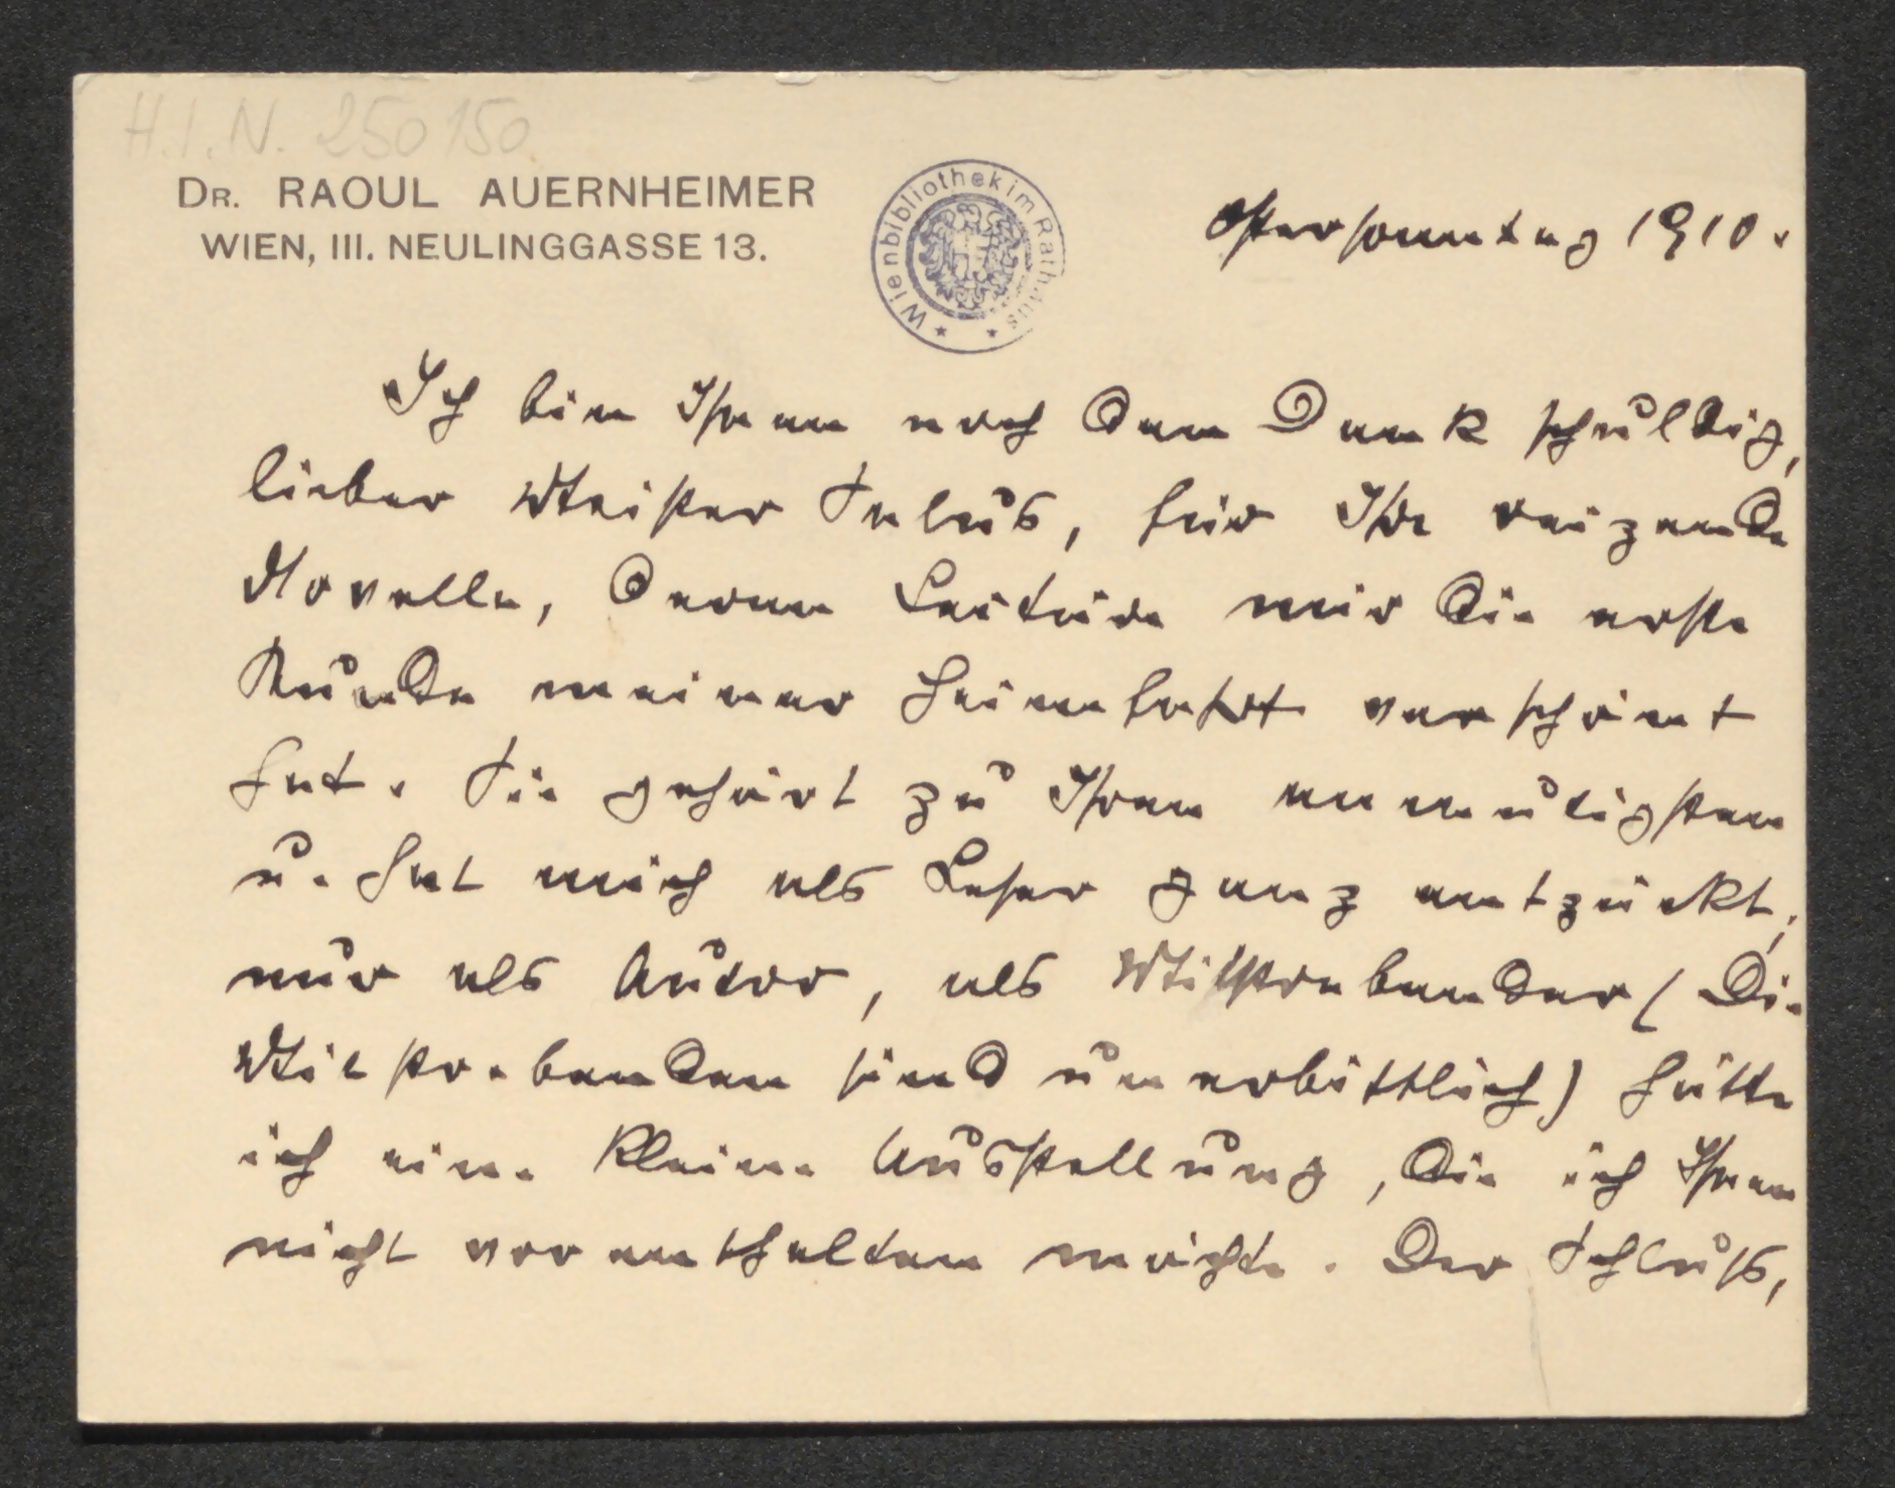 H.I.N. 250150
DR. RAOUL AUERNHEIMER
WIEN, III. NEULINGGASSE 13.
Wienbibliothek im Rathaus
Ostersonntag 1910.
Ich bin Ihnen noch den Dank schuldig,
lieber Meister Salus, für Ihre reizende
Novelle, deren Lectüre mir die erste
Stunde meiner Heimfahrt verschönt
hat. Sie gehört zu Ihren anmutigsten
u. hat mich als Leser ganz entzückt;
nur als Autor, als Mitstrebender (die
Mitstrebenden sind unerbittlich) hätte
ich eine kleine Ausstellung, die ich Ihnen
nicht vorenthalten möchte. Der Schluß,